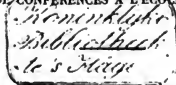 CONFÉRENCES À L'ÉCO
Koninklijke
Bibliotheek
te 's Hage